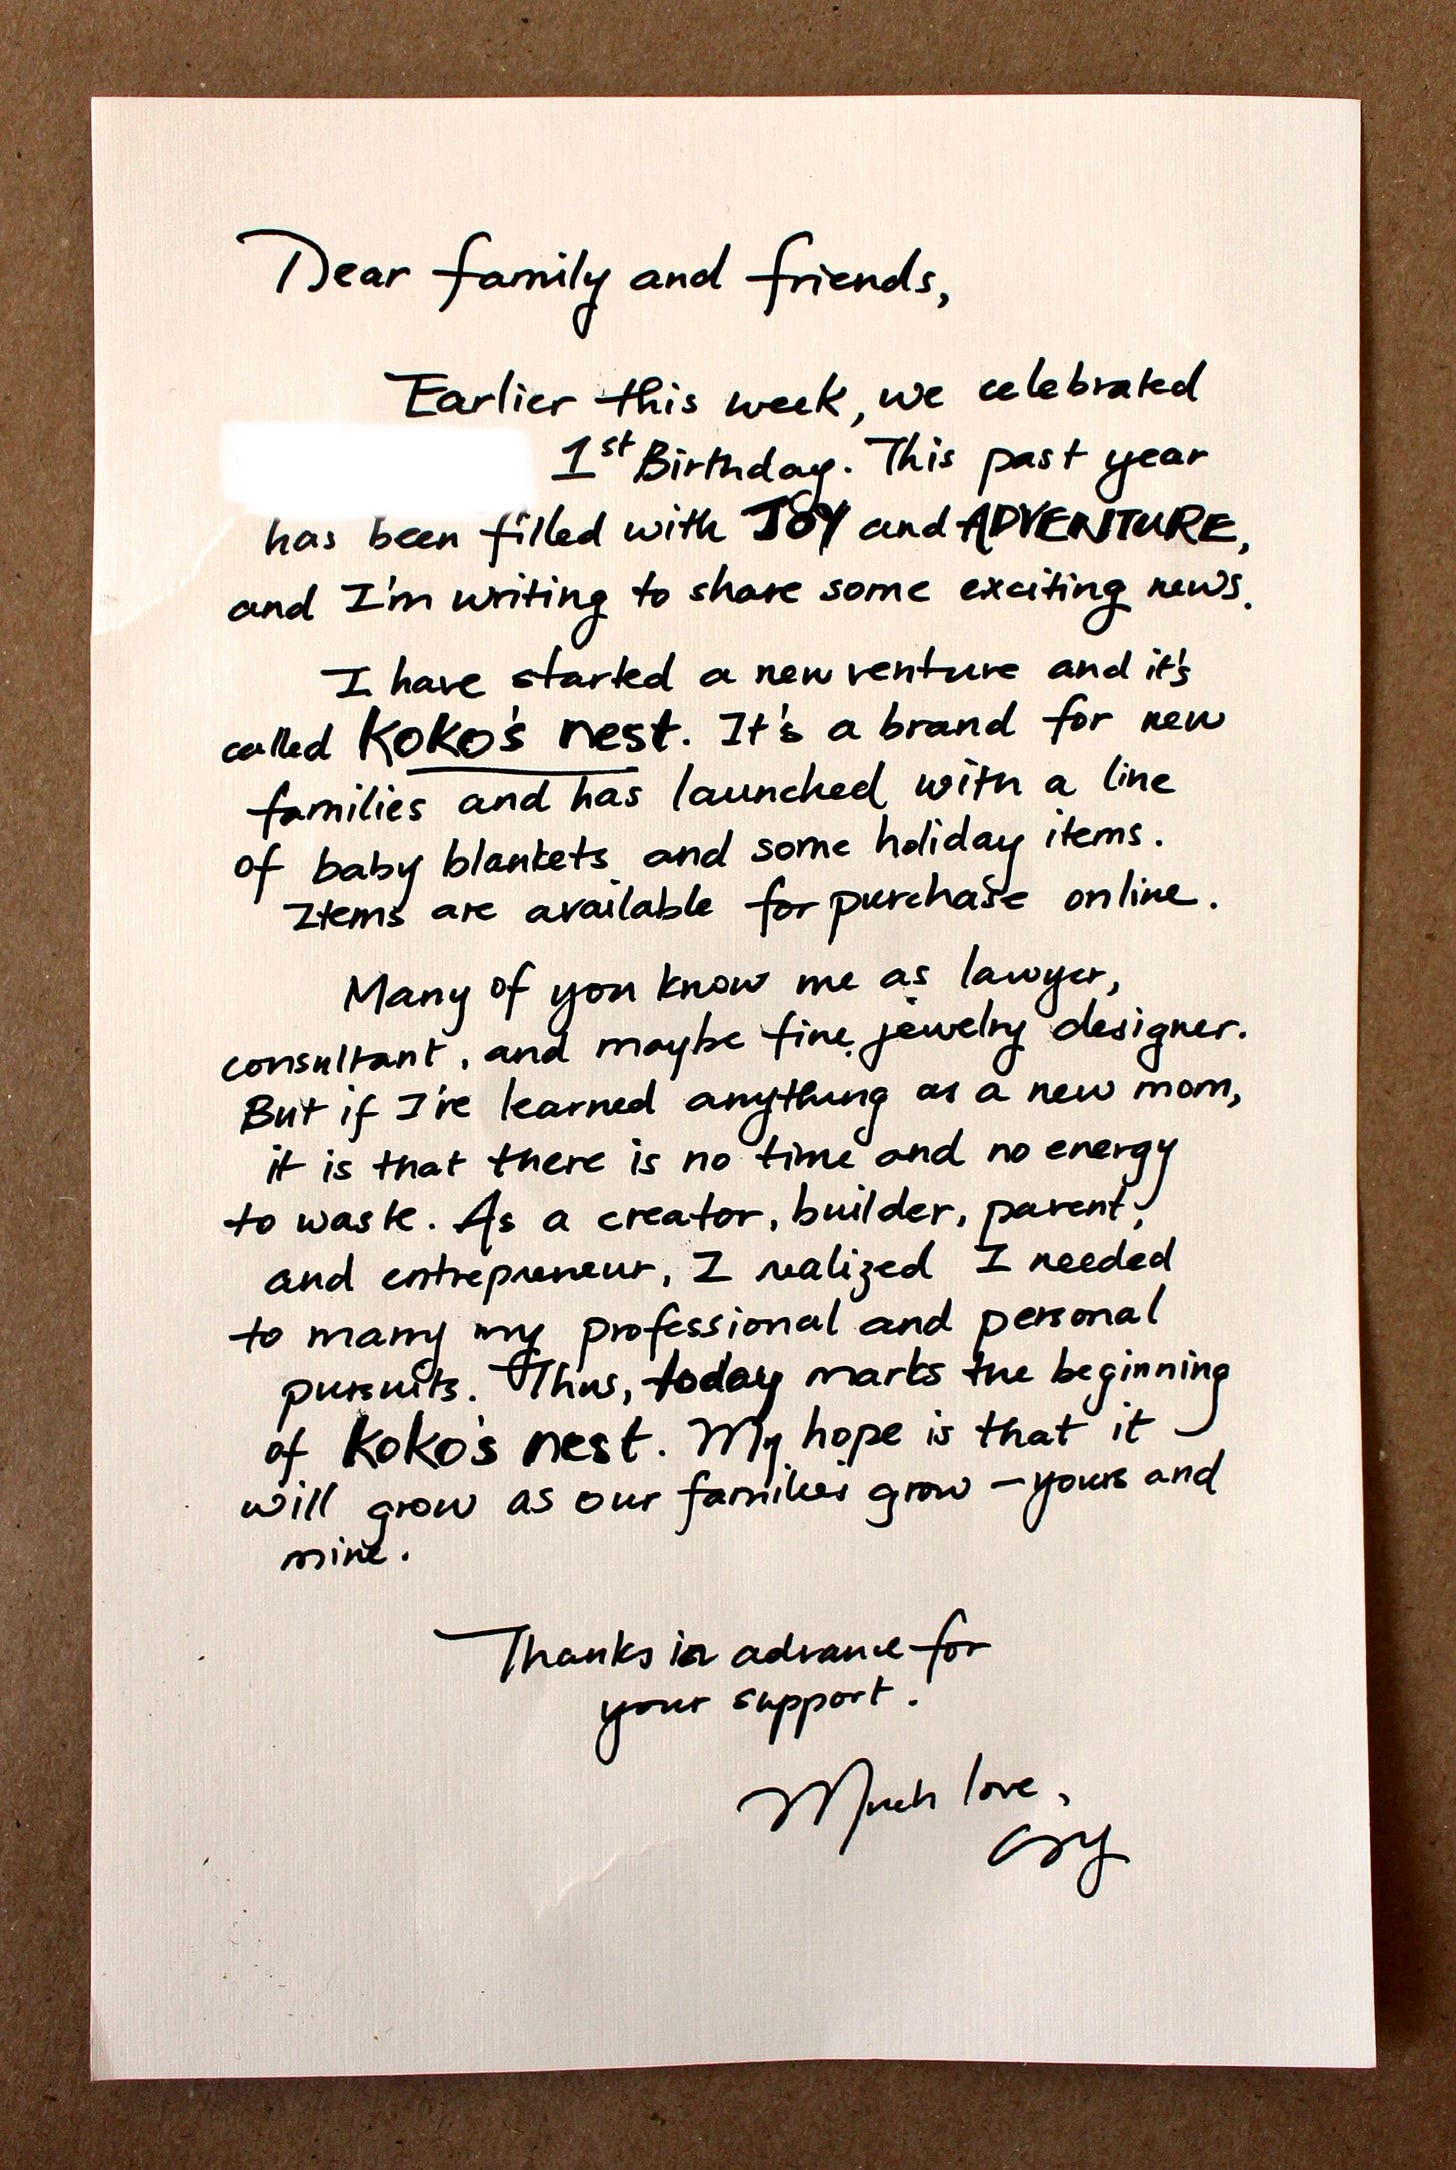 Dear family and friends,
Earlier this week, we celebrated
1st Birthday. This past year
has been filled with JOY and ADVENTURE,
and I'm writing to share some exciting news.
I have started a new venture and it's
called Koko's nest. It's a brand for new
families and has launched with a line
of baby blankets and some holiday items.
Items are available for purchase online.
Many of you know me as lawyer,
consultant, and maybe fine jewelry designer.
But if I've learned anything as a new mom,
it is that there is no time and no energy
to waste. As a creator, builder, parent,
and entrepreneur, I realized I needed
to marry my professional and personal
pursuits. Thus, today marks the beginning
of Koko's nest. My hope is that it
will grow as our families grow – yours and
mine.
Thanks in advance for
your support.
Much love,